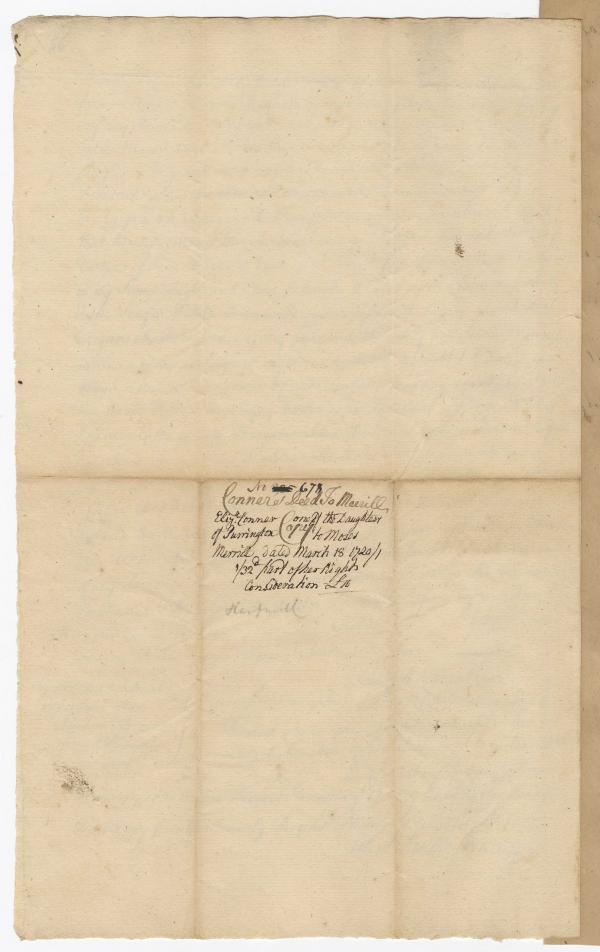 No 673
Conner's Deed To Merrill
Eliz.a Conner (one of the Daughters
of Purrington to Moses
Merrill, dated March 18 1720/1
1/32d part of her Right
Consideration £
Harpswell